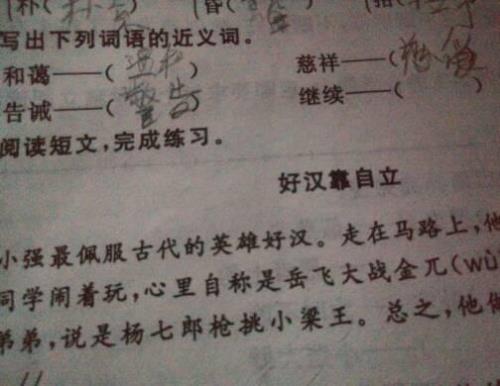 朴( 朴 昏( 招(
写出下列词语的近义词。
和蔼——( 温和 ) 慈祥——( 慈
告诫——( 警告 ) 继续——(
阅读短文,完成练习。
好汉靠自立
小强最佩服古代的英雄好汉。走在马路上,他
同学闹着玩,心里自称是岳飞大战金兀(wù
弟弟,说是杨七郎枪挑小梁王。总之,他